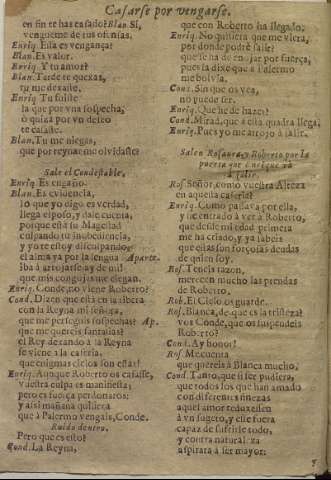 Casarse por vengarse.
en fin te has casado? Blan. Si,
vengueme de tus ofensas.
Enriq. Essa es vengança?
Blan. Es valor.
Enriq. Y tu amor?
Blan. Tarde te quexas,
tu me dexaste.
Enriq. Tu fuiste
la que por vna sospecha,
ò quiza por vn desseo
te casaste.
Blan. Tu me niegas,
que por reynar me olvidaste?
Sale el Condestable.
Enriq. Es engaño.
Blan. Es evidencia,
lo que yo digo es verdad,
llega esposo, y dale cuenta,
porque està su Magestad
culpando tu inobediencia,
y yo te estoy disculpando,
el alma ya por la lengua Aparte.
iba à arrojarse, ay de mi!
que mis congojas me alegan.
Enriq. Conde, no viene Roberto?
Cond. Dizen que està en la ribera
con la Reyna mi señora,
que me perseguis sospechas? Ap.
que me quereis fantasias?
el Rey dexando à la Reyna
se viene à la caseria,
que enigmas cielos son estas?
Enriq. Aunque Roberto os casasse,
vuestra culpa es manifiesta,
pero es fuerça perdonaros:
y assi mañana quisiera
que à Palermo vengais, Conde.
Ruido dentro.
Pero que es esto?
Cond. La Reyna,
que con Roberto ha llegado.
Enriq. No quisiera que me viera,
por donde podrè salir?
que se ha de enojar por fuerça,
pues la dixe que à Palermo
me bolvia.
Cond. Sin que os vea,
no puede ser.
Enriq. Que he de hazer?
Cond. Mirad, que à esta quadra llega.
Enriq. Pues yo me arrojo à salir.
Salen Rosaura, y Roberto por la
puerta que Enrique và
à salir.
Ros. Señor, como vuestra Alteza
en aquesta caseria?
Enriq. Como passava por ella,
y he entrado à ver à Roberto,
que desde mi edad primera
me ha criado, y ya sabeis
que estas son forçosas deudas
de quien soy.
Ros. Teneis razon,
merecen mucho las prendas
de Roberto.
Rob. El Cielo os guarde.
Ros. Blanca, de que es la tristeza?
vos Conde, que os suspendeis
Roberto?
Cond. Ay honor!
Ros. Me cuenta
que quereis à Blanca mucho.
Cond. Tanto, que si ser pudiera,
que todos los que han amado
con diferentes finezas
aquel amor reduxessen
à vn sugeto, y esse fuera
capaz de sufrirle todo,
y contra natural
aspirara à ser mayor: